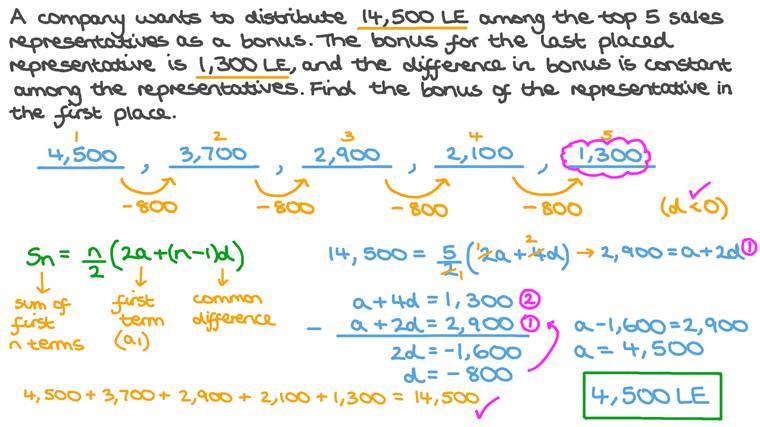 A company wants to distribute 14,500 LE among the top 5 sales
representatives as a bonus. The bonus for the last placed
representative is 1,300 LE, and the difference in bonus is constant
among the representatives. Find the bonus of the representative in
the first place.
1 2 3 4 5
4,500 , 3,700 , 2,900 , 2,100 , 1,300
-800 -800 -800 -800 (d < 0) ✓
Sn = n/2 (2a + (n-1)d)
sum of first n terms
first term (a1)
common difference
14,500 = 5/2 (2a + 4d) → 2,900 = a + 2d ①
1 1 2
a + 4d = 1,300 ②
- a + 2d = 2,900 ①
2d = -1,600
d = -800
a - 1,600 = 2,900
a = 4,500
4,500 + 3,700 + 2,900 + 2,100 + 1,300 = 14,500 ✓
4,500 LE